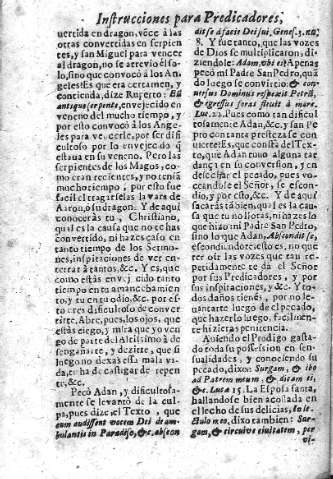 Instrucciones para Predicadores,
uertida en dragon, vēce à las
otras convertidas en serpien
tes, y san Miguel para vencer
al dragon, no se atreviò èl so-
lo, sino que convocò à los An-
geles Es que era certamen, y
contienda, dize Rugero: Ed
antiqua serpente, envejecido en
veneno del mucho tiempo, y
por esto convocò à los Ange-
les para vencerle, por ser difi
cultoso por lo envejecido q̄
estaua en su veneno. Pero las
serpientes de los Magos, co-
mo eran recientes, y no teniā
mucho tiempo, por esto fue
facil el tragarselas la vara de
Aaron, ò dragon. Y de aqui
conoceràs tu, Christiano,
qual es la causa que no te has
convertido, ni hazes caso en
tanto tiempo de los Sermo-
nes, inspiraciones de ver en-
terrar à tantos, &c. Y es, que
como estàs envejecido tanto
tiempo en tu amancebamien
to, y tu en tu odio, &c. por es-
to eres dificultoso de conver
tirte. Abre, pues, los ojos, que
estàs ciego, y mira que yo ven
go de parte del Altissimo à de
sengañarte, y dezirte, que si
luego no dexas essa mala vi-
da, te ha de castigar de repen
te, &c.
Pecò Adan, y dificultosa-
mente se levantò de la cul-
pa, pues dize el Texto, que
cum audissent vocem Dei de am-
bulantis in Paradiso, &c. abscon
dit se à facie Dei sui, Genes. 3. nū.
8. Y fue tanto, que las vozes
de Dios se multiplicaron, di-
ziendole: Adam vbi es? Apenas
pecò mi Padre San Pedro, quā
do luego se convirtiò: & con-
uersus Dominus respexit Petrū,
& egressus foras fleuit amarè.
Luc. 22. Pues como tan dificul
tosamente Adan, &c. y san Pe
dro con tanta presteza se con
uierte: Es, que consta del Tex-
to, que Adan tuuo alguna tar
dança en su conversion, y en
desechar el pecado, pues vo-
candole el Señor, se escon-
dio, y por esto, &c. Y de aqui
sacaràs tãbien, qual es la cau-
sa que tu no lloras, ni hazes lo
que hizo mi Padre San Pedro,
sino lo que Adan, Abscondit se,
escondiendote; esto es, no que
rer oir las vozes que tan re-
petidamente te dà el Señor
por sus Predicadores, y por
sus inspiraciones, y &c. Y to-
dos daños tienès, por no le-
uantarte luego del pecado,
que hazerlo luego, facilmen-
te hizieras penitencia.
Auiendo el Prodigo gasta-
do toda su possession en sen-
sualidades, y conociendo su
pecado, dixo: Surgam, & ibo
ad Patrem meum, & dicam ei,
&c. Luc. 15. La Esposa santa,
hallandose bien acostada en
el lecho de sus delicias, In le-
ctulo meo, dixo tambien: Sur-
gam, & circuibo ciuitatem, per
vi-